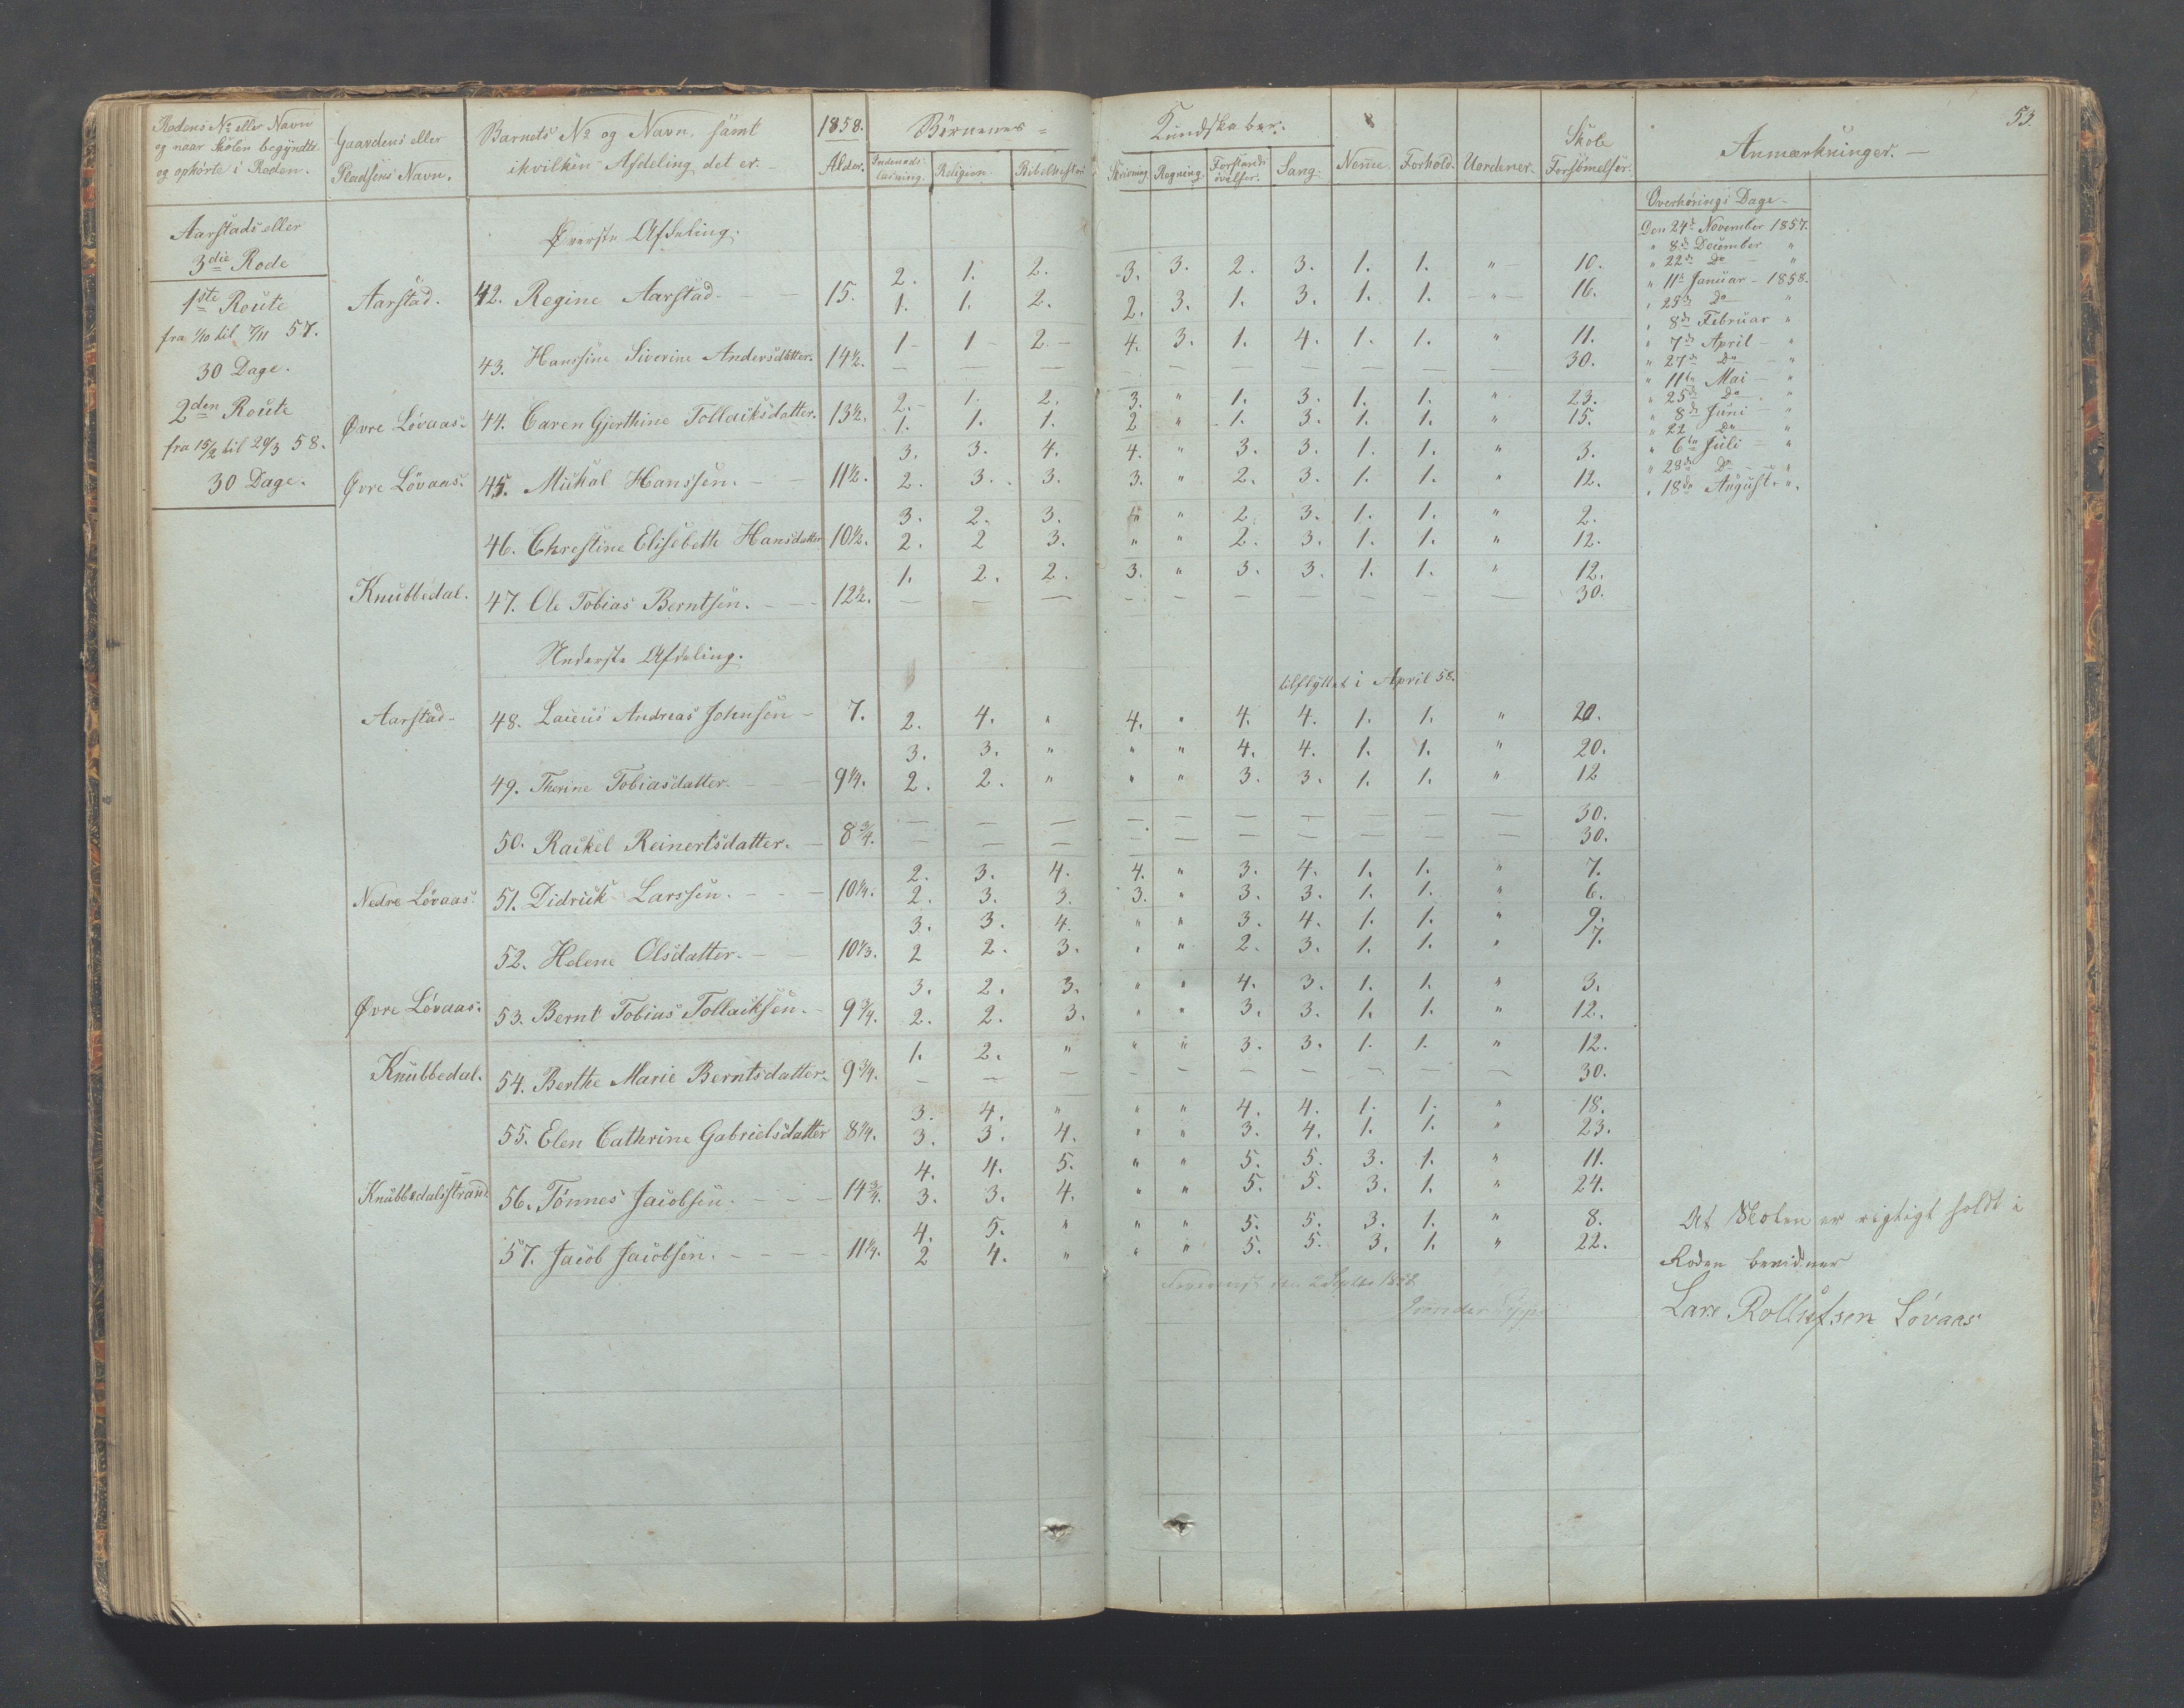 53.
Rodens No eller Navn
og naar Skolen begyndte
og ophørte i Roden.
Gaardens eller
Pladsens Navn.
Barnets No og Navn, samt
ihvilken Afdeling det er.
1858.
Alder.
Børnenes
Kundskaber.
Indenads-
læsning. Religion. Bibelhistorie
Skrivning Regning. Forstands
øvelser. Sang. Nemme. Forhold. Uordener. Skole
Forsømmelser.
Anmærkninger.
Aarstads eller
3die Rode
1ste Route
fra 1/10 til 7/11 57.
30 Dage.
2den Route
fra 15/2 til 20/3 58.
30 Dage.
Øverste Afdeling.
Aarstad. 42. Regine Aarstad. 15. 2. 1. 2. 3. 3. 2. 3. 1. 1. " 10.
1. 1. 2. 2. 3. 1. 3. 1. 1. " 16.
43. Hanssine Siverine Andersdatter. 14½. 1 1 2. 4. 3. 1. 4. 1. 1. " 11.
— — — — — — — — — — 30.
Øvre Løvaas. 44. Caren Gjerthine Tollaiksdatter. 13½. 2. 1. 2. 3. " 1. 3. 1. 1. " 23.
1. 1. 1. 2 " 1. 3. 1. 1. " 15.
Øvre Løvaas. 45. Mickal Hanssen. 11½. 3. 3. 4. 4. " 3. 3. 1. 1. " 3.
2. 3. 3. 3. " 2. 3. 1. 1. " 12.
46. Chrestine Elisebeth Hansdatter 10½. 3. 2. 3. " " 2. 3. 1. 1. " 2.
2. 2 3. " " 2. 3. 1. 1. " 12.
Knubbedal. 47. Ole Tobias Berntsen. 12½. 1. 2. 2. 3. " 3. 3. 1. 1. " 12.
— — — — — — — — — — 30.
Nederste Afdeling.
tilflyttet i April 58.
Aarstad 48. Laurits Andreas Johnsen 7. 2. 4. " 4. " 4. 4. 1. 1. " 20.
49. Therine Tobiasdatter. 9¼. 3. 3. " " " 4. 4. 1. 1. " 20.
2. 2. " " " 3. 3. 1. 1. " 12
50. Rackel Reinertsdatter. 8¾. — — — — — — — — — — — 30.
— — — — — — — — — — 30.
Nedre Løvaas. 51. Didrick Larssen. 10¼. 2. 3. 4. 4. " 3. 4. 1. 1. " 7.
2. 3. 3. 3. " 3. 3. 1. 1. " 6.
52. Helene Olsdatter. 10⅓. 3. 3. 4. " " 3. 4. 1. 1. " 9.
2 2. 3. " " 2. 3. 1. 1. " 7.
Øvre Løvaas. 53. Bernt Tobias Tollaiksen. 9¾. 3. 2. 3. " " 4. 3. 1. 1. " 3.
2. 2. 3. " " 3. 3. 1. 1. " 12.
Knubbedal. 54. Berthe Marie Berntsdatter. 9¾. 1. 2. " " " 3. 3. 1. 1. " 12.
— — — — — — — — — — 30.
55. Elen Cathrine Gabrielsdatter 8¼. 3. 4. " " " 4. 4. 1. 1. " 18.
3. 3. 4. " " 3. 4. 1. 1. " 23.
Knubbedalsstrand 56. Tønnes Jacobsen. 14¾. 4. 4. 5. " " 5. 5. 3. 1. " 11.
3. 3. 4. " " 5. 5. 3. 1. " 24.
57. Jacob Jacobsen. 11¼. 4. 5. " " " 5. 5. 3. 1. " 8.
2 4. " " " 5. 5. 3. 1. " 22.
Overhørings Dage
Den 24de November 1857.
" 8de December "
" 22de Do "
" 11te Januar 1858.
" 25de Do "
" 8de Februar "
" 7de April "
" 27de Do "
" 11te Mai "
" 25de Do "
" 8de Juni "
" 22 Do "
" 6te Juli "
" 28de Do "
" 18de August "
At Skolen er rigtigt holdt i
Roden bevidner
Lars Løvaas